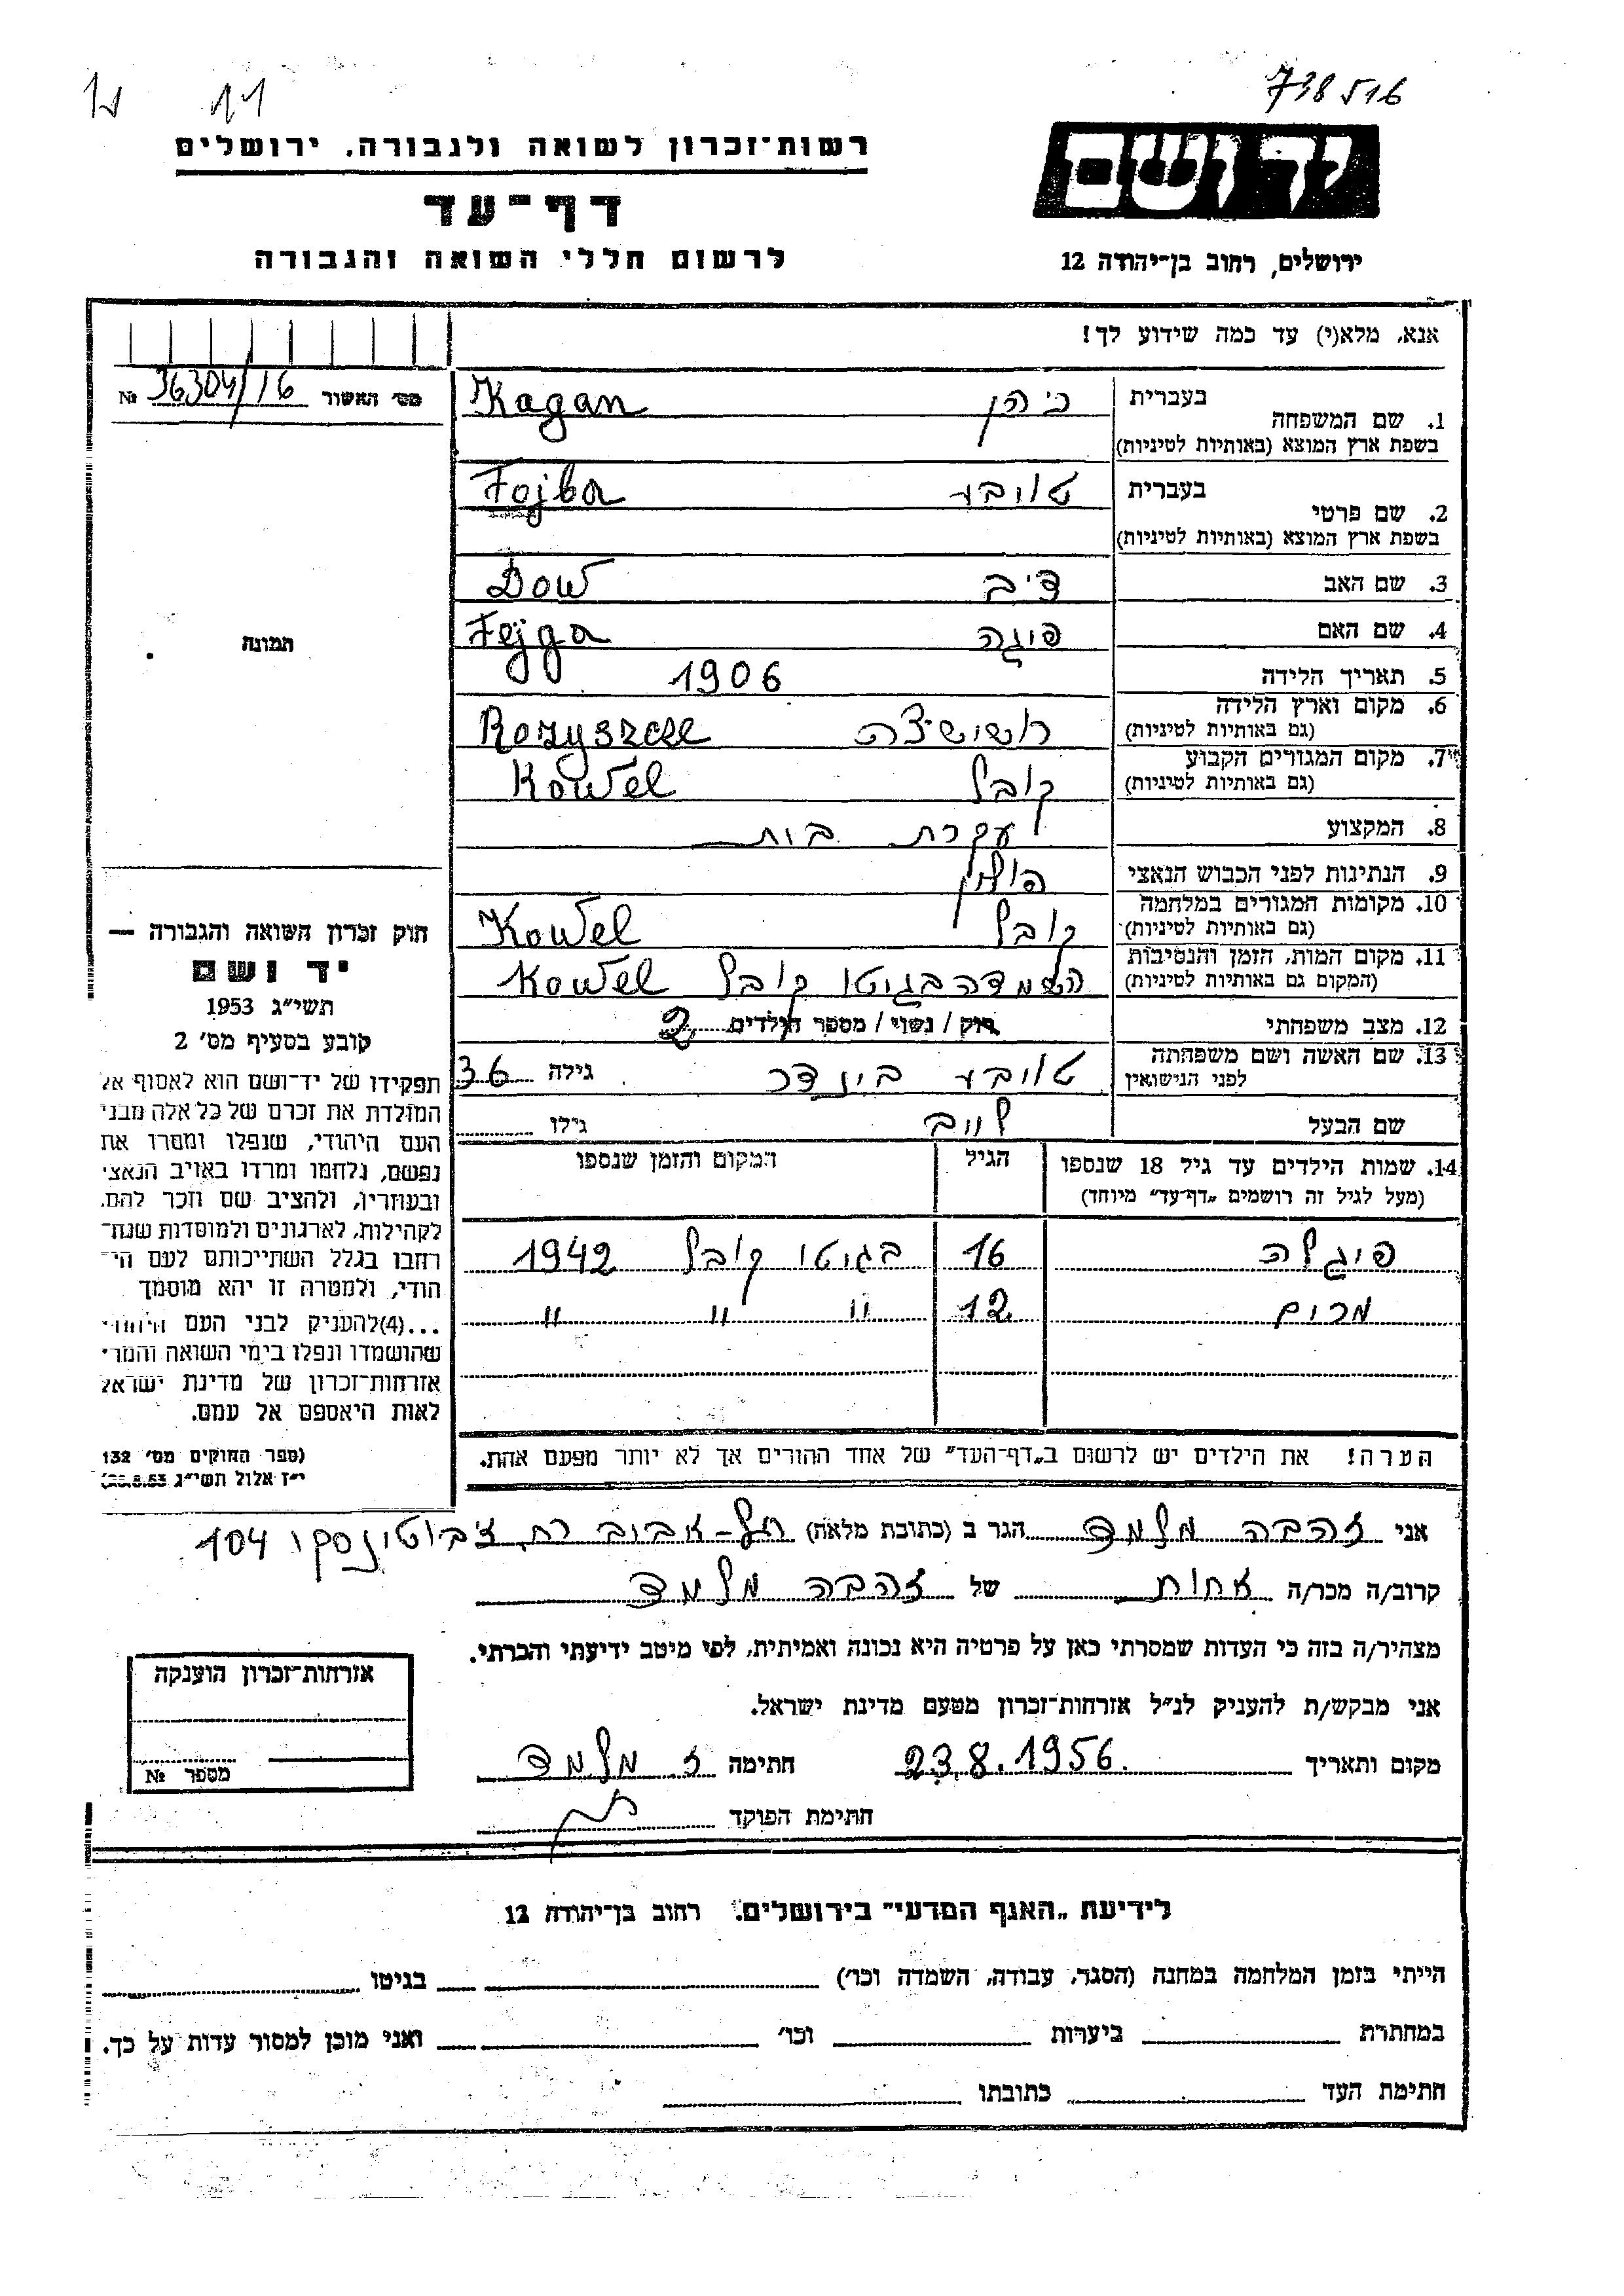 738516
רשות־זכרון לשואה ולגבורה, ירושלים
יד ושם
דף־עד
לרשום חללי השואה והגבורה
ירושלים, רחוב בן־יהודה 12
אנא, מלא(י) עד כמה שידוע לך!
מס׳ האשור 36304/16 №
1. שם המשפחה בעברית כהן Kagan
בשפת ארץ המוצא (באותיות לטיניות)
2. שם פרטי בעברית טויבע Tojba
בשפת ארץ המוצא (באותיות לטיניות)
3. שם האב דוב Dow
4. שם האם פיגה Fejga
5. תאריך הלידה 1906
6. מקום וארץ הלידה (גם באותיות לטיניות) רוזישצה Rozyszcze
7. מקום המגורים הקבוע (גם באותיות לטיניות) קובל Kowel
8. המקצוע עקרת בית
9. הנתינות לפני הכבוש הנאצי פולין
10. מקומות המגורים במלחמה (גם באותיות לטיניות) קובל Kowel
11. מקום המות, הזמן והנסיבות (המקום גם באותיות לטיניות) השמדה בגיטו קובל Kowel
12. מצב משפחתי רוק / נשוי / מספר הילדים 2
13. שם האשה ושם משפחתה לפני הנישואין טויבע בינדר גילה 36
שם הבעל לייב גילו
14. שמות הילדים עד גיל 18 שנספו הגיל המקום והזמן שנספו
(מעל לגיל זה רושמים „דף־עד״ מיוחד)
פיגלה 16 בגיטו קובל 1942
מרים 12 " " "
הערה! את הילדים יש לרשום ב„דף־העד״ של אחד ההורים אך לא יותר מפעם אחת.
תמונה
חוק זכרון השואה והגבורה —
יד ושם
תשי״ג 1953
קובע בסעיף מס׳ 2
תפקידו של יד־ושם הוא לאסוף אל
המולדת את זכרם של כל אלה מבני
העם היהודי, שנפלו ומסרו את
נפשם, נלחמו ומרדו באויב הנאצי
ובעוזריו, ולהציב שם וזכר להם,
לקהילות, לארגונים ולמוסדות שנח־
רחבו בגלל השתייכותם לעם הי־
הודי, ולמטרה זו יהא מוסמך
...(4)להעניק לבני העם היהודי
שהושמדו ונפלו בימי השואה והמרי
אזרחות־זכרון של מדינת ישראל
לאות היאספם אל עמם.
(ספר החוקים מס׳ 132
י״ז אלול תשי״ג 28.8.53)
אני זהבה מלמד הגר ב (כתובת מלאה) תל-אביב רח ז'בוטינסקי 104
קרוב/ה מכר/ה אחות של זהבה מלמד
מצהיר/ה בזה כי העדות שמסרתי כאן על פרטיה היא נכונה ואמיתית, לפי מיטב ידיעתי והכרתי.
אני מבקש/ת להעניק לנ״ל אזרחות־זכרון מטעם מדינת ישראל.
מקום ותאריך 23.8.1956 חתימה ז מלמד
חתימת הפוקד
אזרחות־זכרון הוענקה
מספר №
לידיעת „האגף המדעי״ בירושלים, רחוב בן־יהודה 12
הייתי בזמן המלחמה במחנה (הסגר, עבודה, השמדה וכו׳) בגיטו
במחתרת ביערות וכו׳ ואני מוכן למסור עדות על כך.
חתימת העד כתובתו